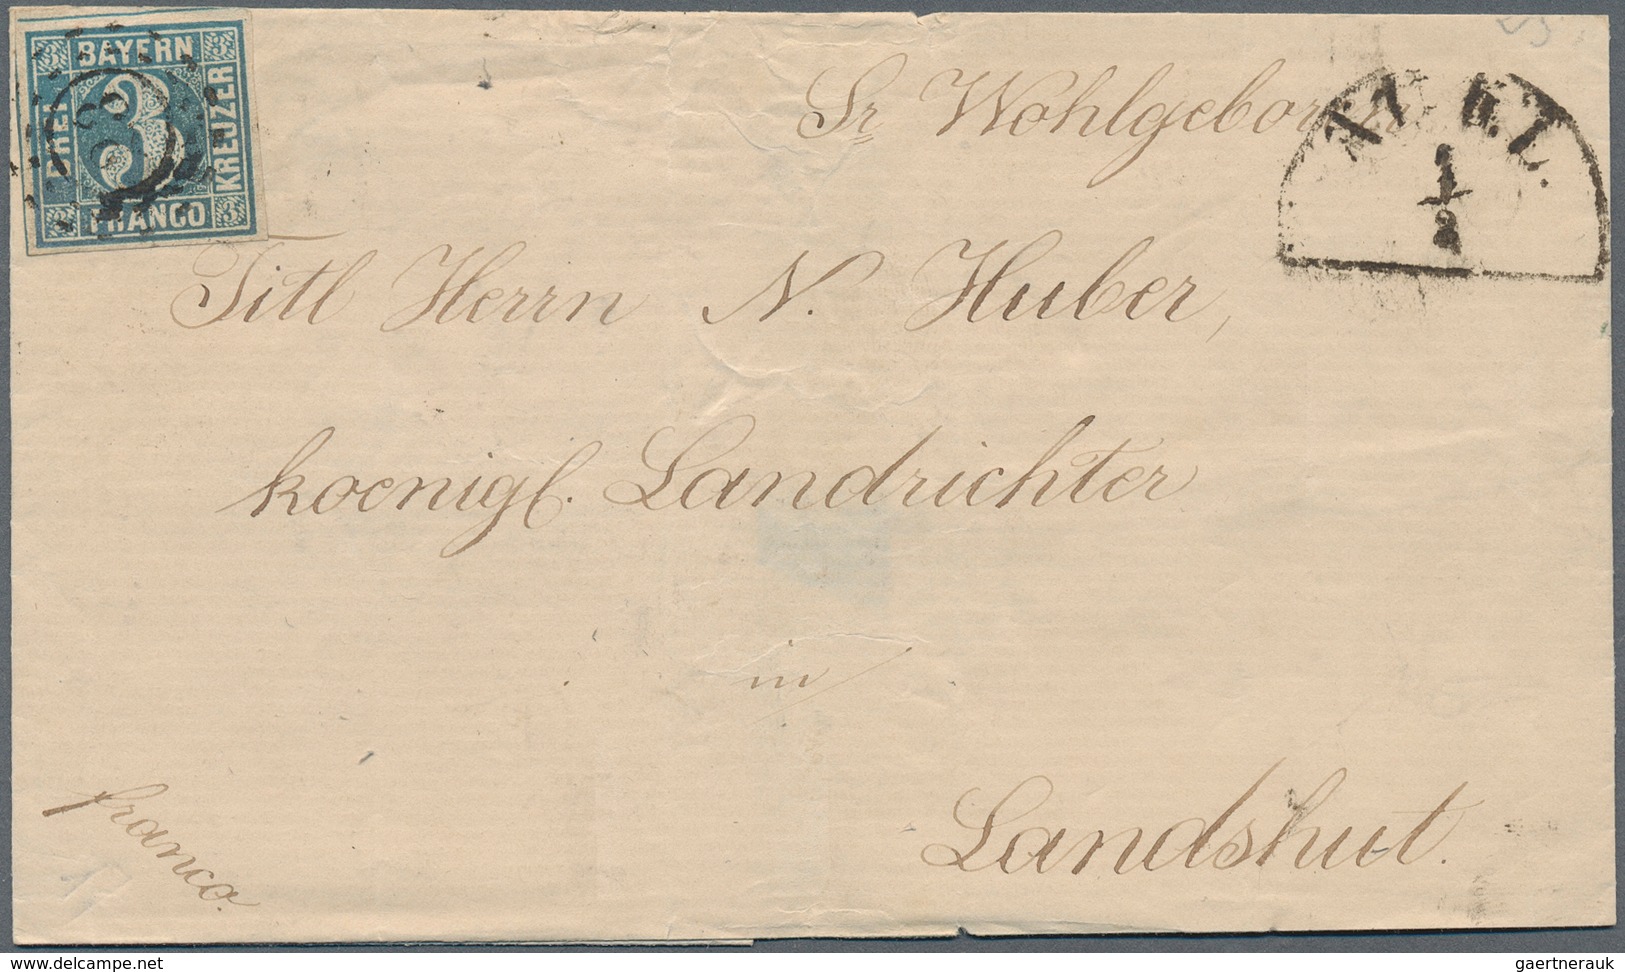 BAYERN
3 3
FREI
3
KREUZER
3 FRANCO 3
Sr Wohlgeboren
1
2
Titl Herrn N. Huber,
koenigl. Landrichter
in
Landshut.
franco.
gaertnerauk
www.delcampe.net